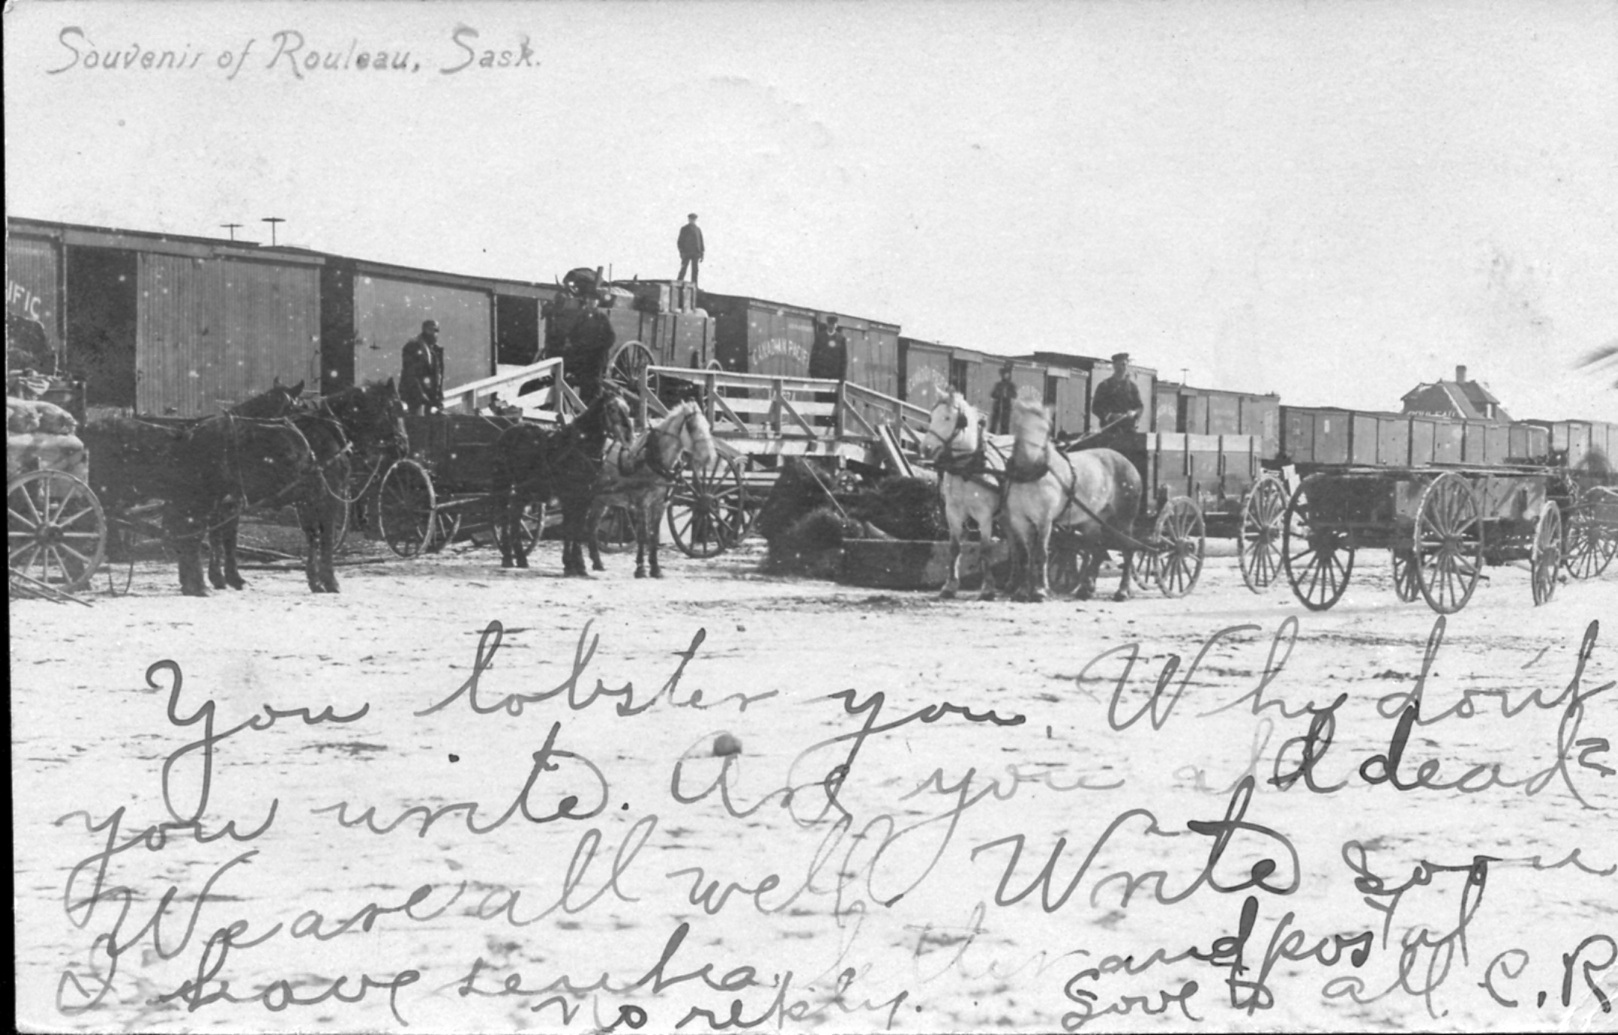 Souvenir of Rouleau, Sask.
IFIC
CANADIAN PACIFIC
You lobster you. Why don't
you write. Are you all dead?
We are all well. Write soon
I have sent a letter and postal
no reply. Love to all. C. R.